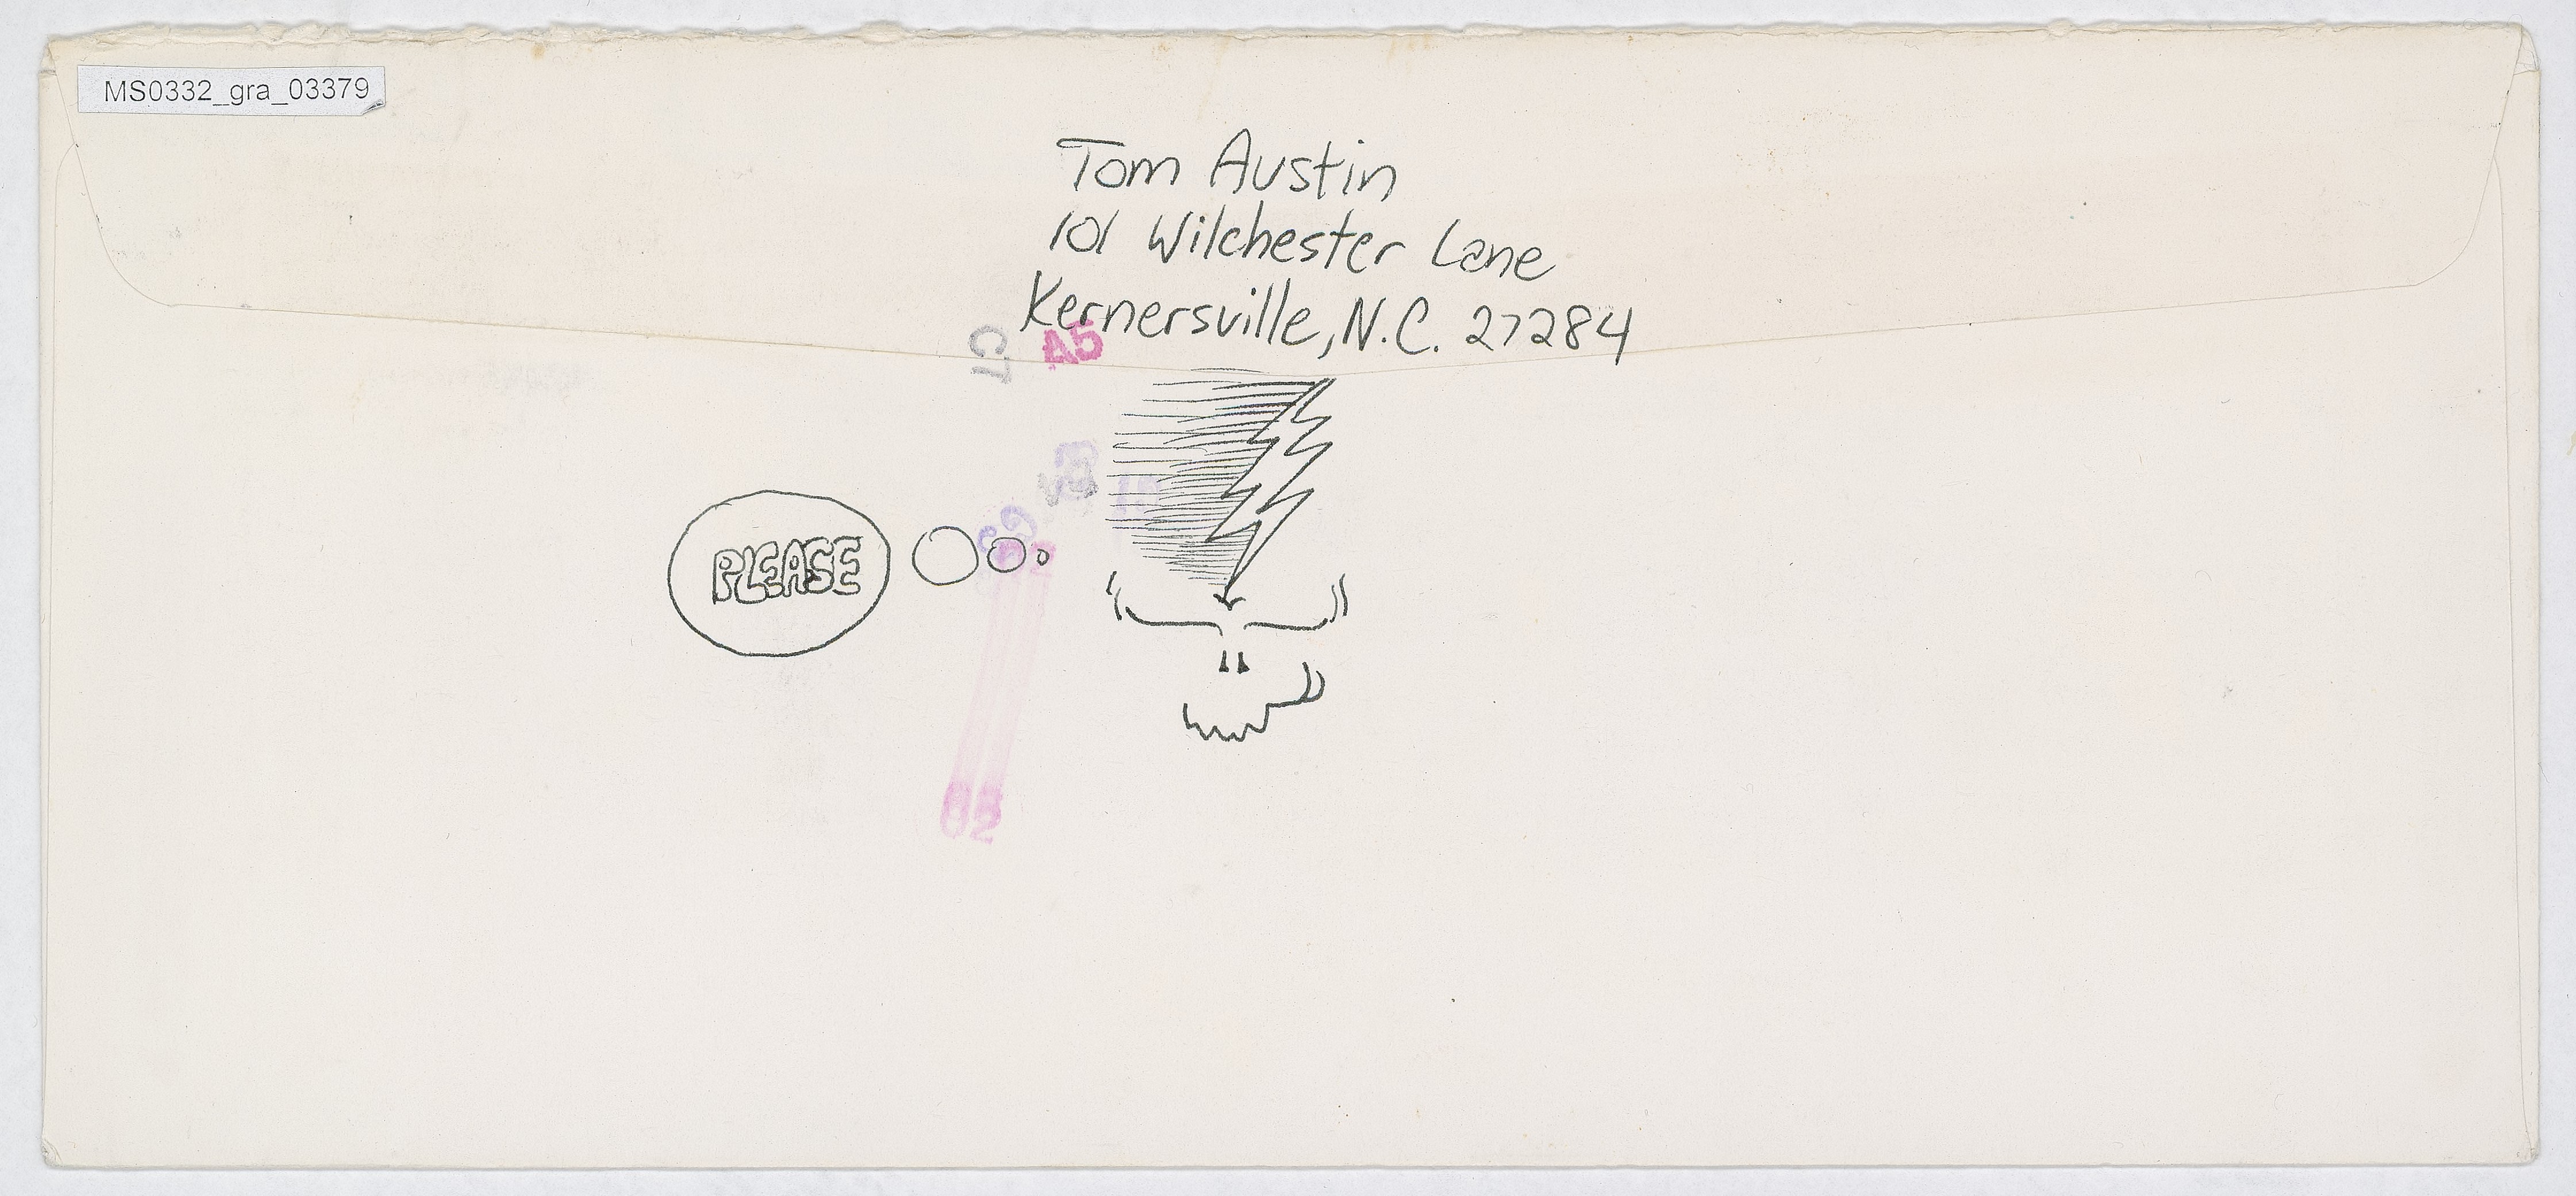 MS0332_gra_03379
Tom Austin
101 Wilchester Lane
Kernersville, N.C. 27284
C7
A5
PLEASE